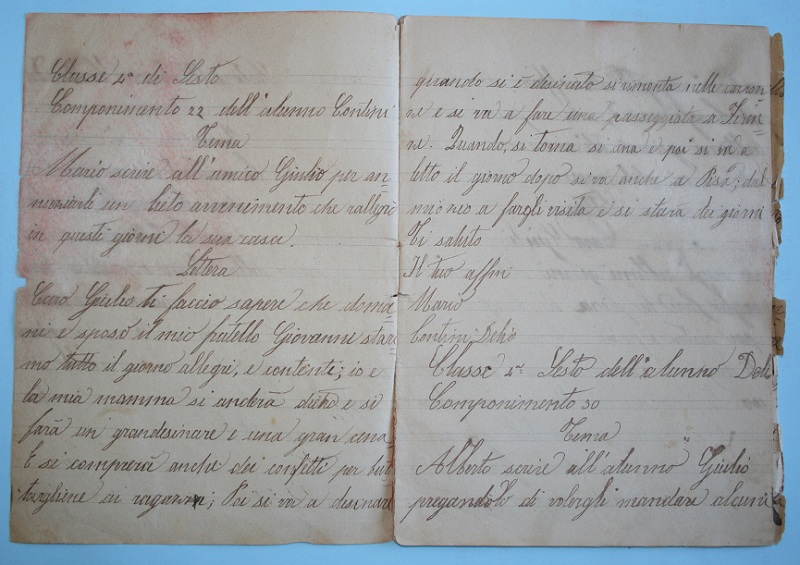 Classe 4ª di Sesto
Componimento 22 dell'alunno Contini
Tema
Mario scrive all'amico Giulio per an-
nunciarli un lieto avvenimento che rallegrò
in questi giorni la sua casa.
Lettera
Caro Giulio ti faccio sapere che doma-
ni e sposò il mio fratello Giovanni stare
mo tutto il giorno allegri, e contenti; io e
la mia mamma si anderà dietro e si
farà un grandesinare e una gran cena
E si comprerà anche dei confetti per but
targliene ai ragazzi; Poi si va a desinare
quando si è desinato si rimonta nelle carroz
ze e si va a fare una passeggiata a Firen-
ze. Quando, si torna si cena e poi si va a
letto il giorno dopo si va anche a Pisa; dal
mio zio a fargli visita e si starà dei giorni
Ti saluto
Il tuo affm
Mario
Contini Delio
Classe 4ª Sesto dell'alunno Deli
Componimento 30
Tema
Alberto scrive all'alunno Giulio
pregandolo di volergli mandare alcuni